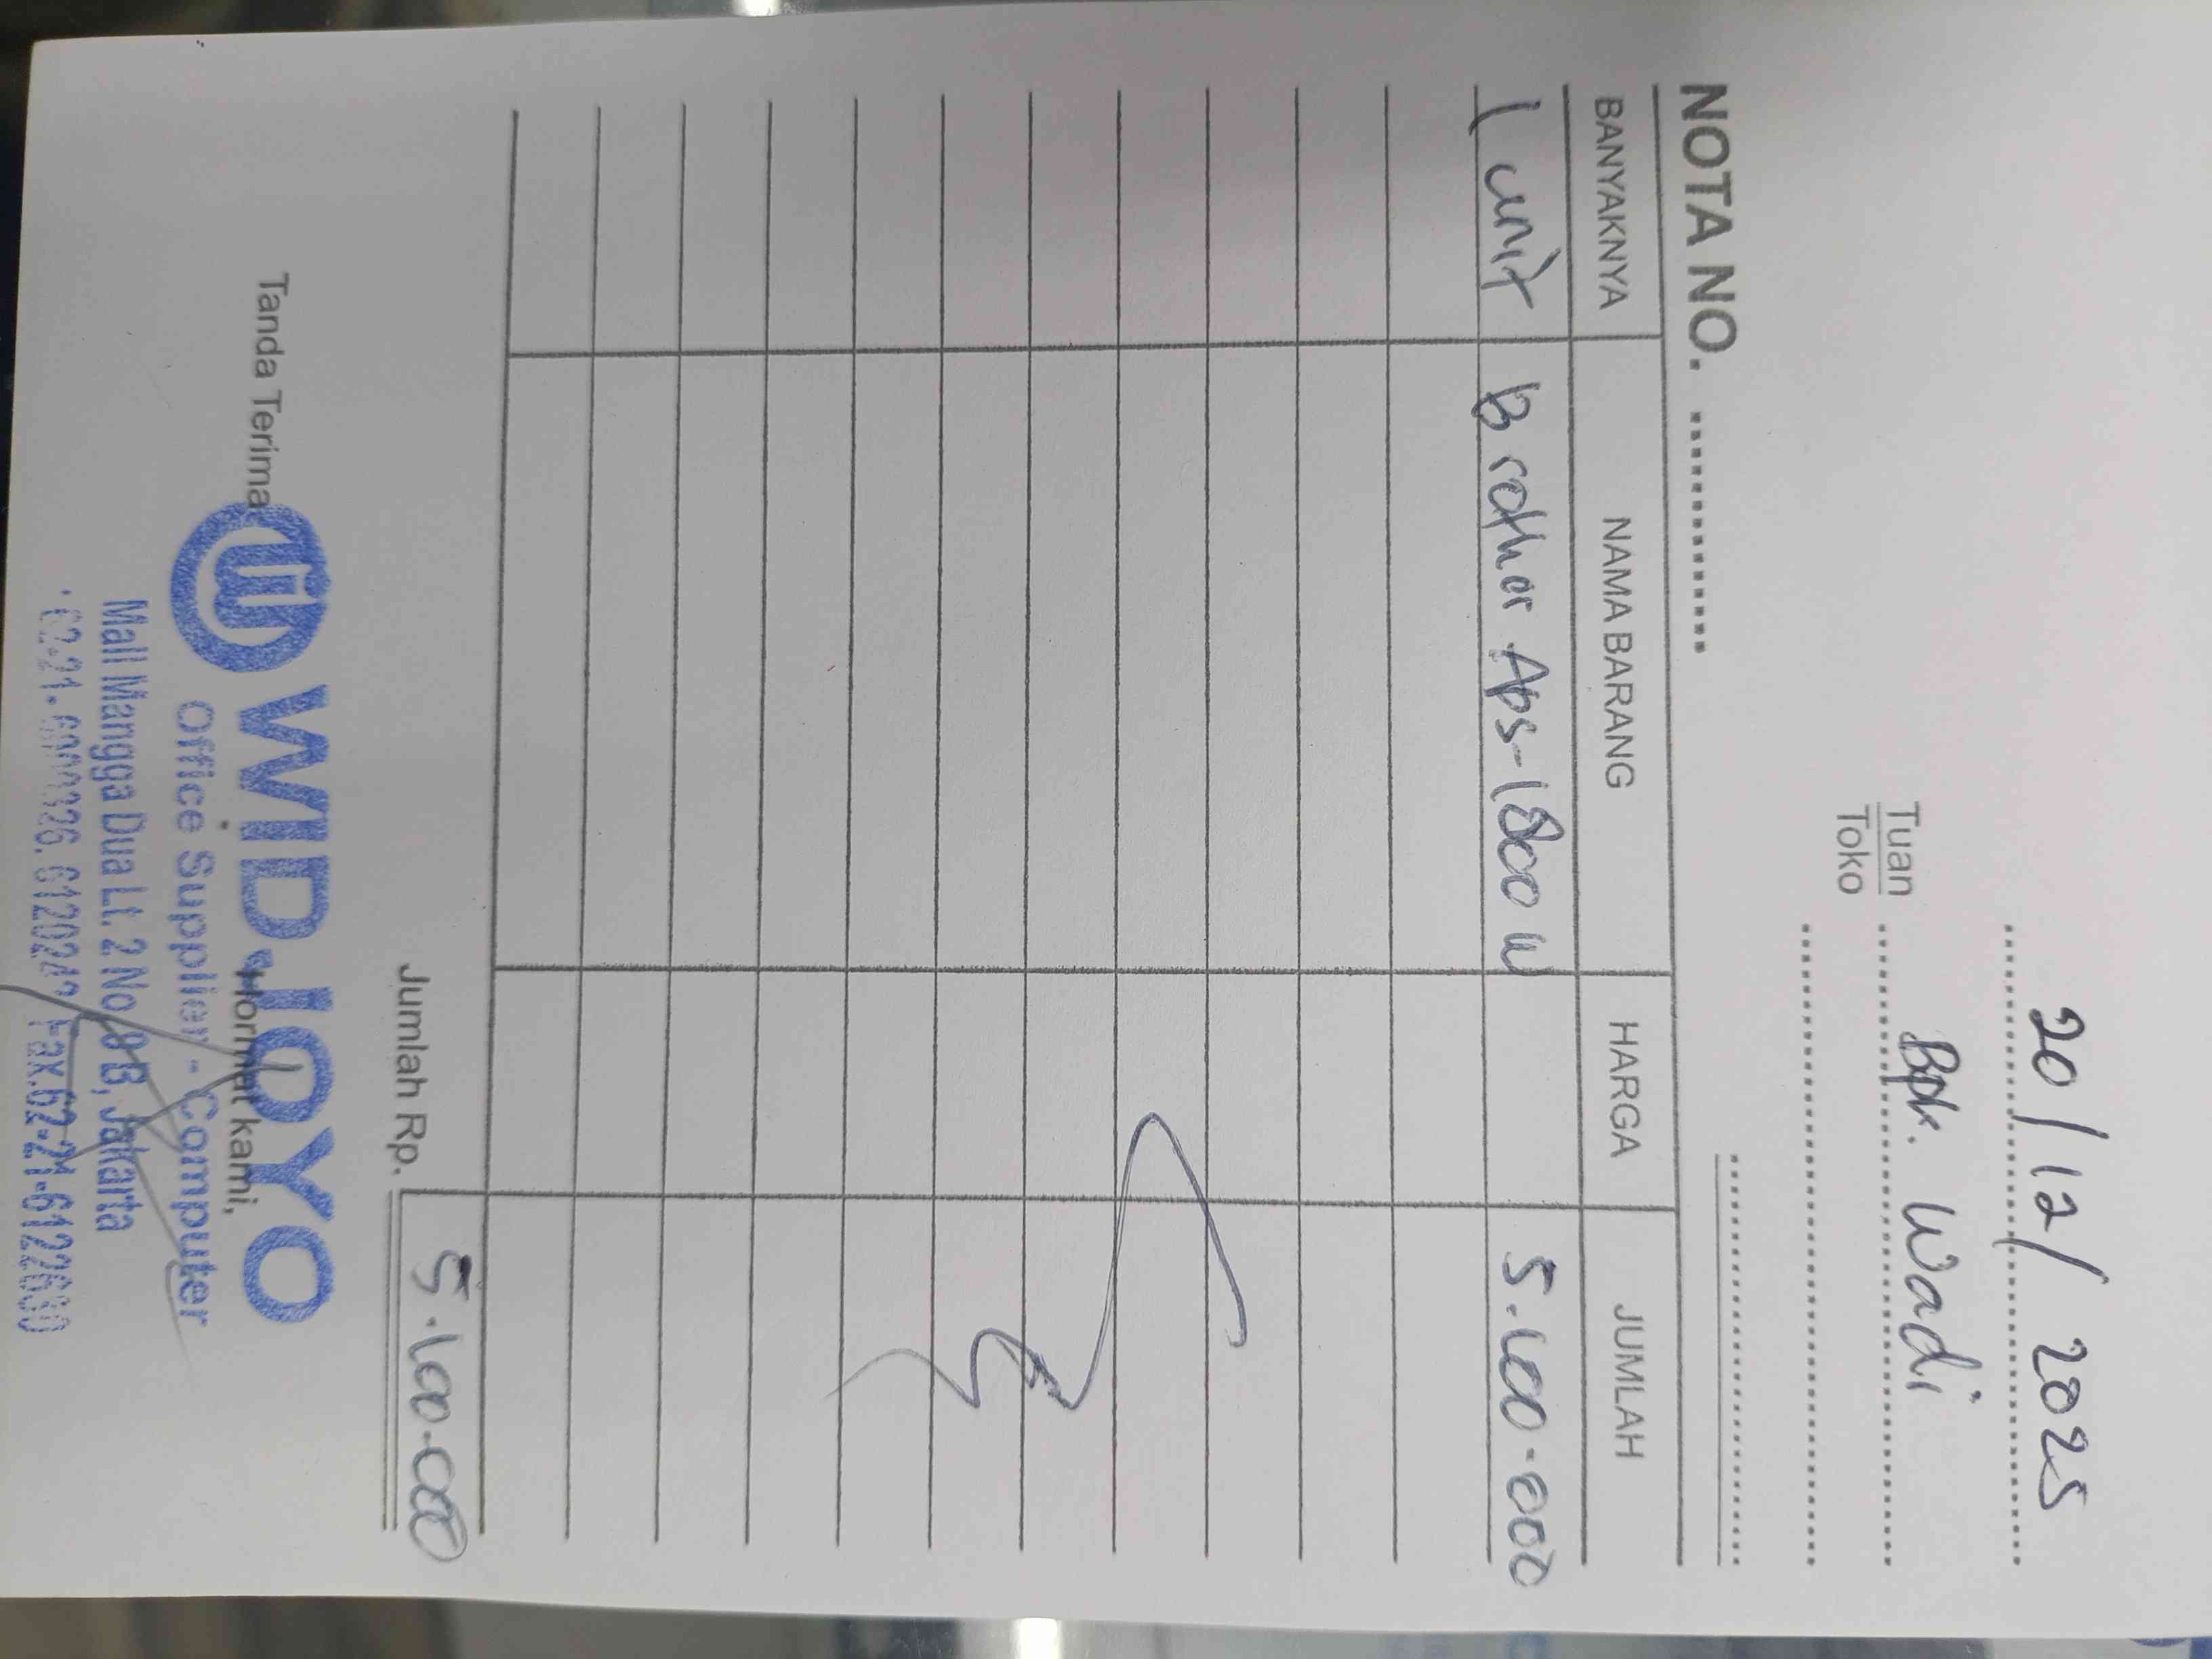 20/12/2025
Tuan Bpk. Wadi
Toko
NOTA NO.
BANYAKNYA NAMA BARANG HARGA JUMLAH
1 unit Brother Ads-1800 W 5.100.000
Jumlah Rp. 5.100.000
Tanda Terima Hormat kami,
WIDJOYO
Office Supplier - Computer
Mall Mangga Dua Lt. 2 No. 81B, Jakarta
Fax.62-21-6122630